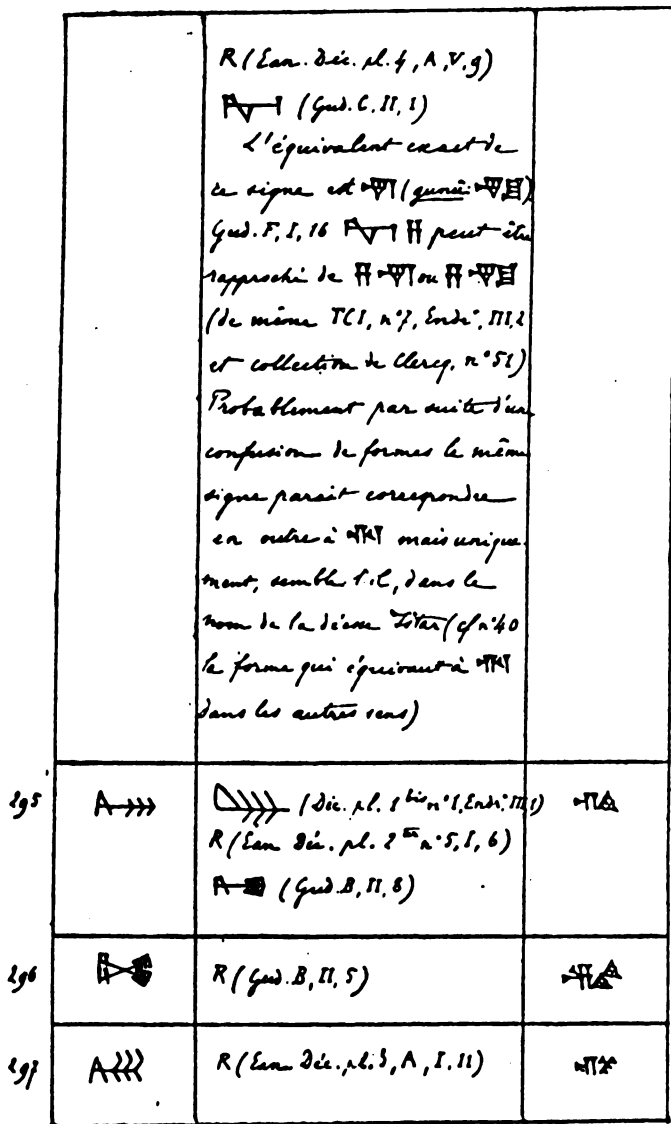 R (Ean. Déc. pl. 4, A, V, 9)
(Gud. C. II, 1)
L'équivalent exact de
ce signe est (gunié: )
Gud. F, I, 16 peut être
rapproché de ou
(de même TCI, n° 7, Endr., III, 2
et collection de Clercq, n° 51)
Probablement par suite d'une
confusion de formes le même
signe parait correspondre
en outre à mais unique-
ment, semble t-il, dans le
nom de la déesse Ištar (cf n° 40
la forme qui équivaut à
dans les autres sens)
295 (Déc. pl. 1 bis n° 1, Endr. III, 1)
R (Ean Déc. pl. 2 n° 5, I, 6)
(Gud. B, II, 8)
296 R (Gud. B, II, 5)
297 R (Ean Déc. pl. 3, A, I, 11)